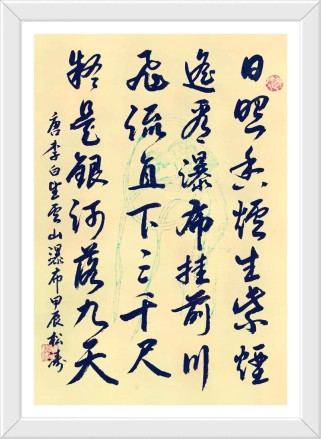 日照香爐生紫煙
遙看瀑布挂前川
飛流直下三千尺
疑是銀河落九天
唐李白望廬山瀑布甲辰松濤